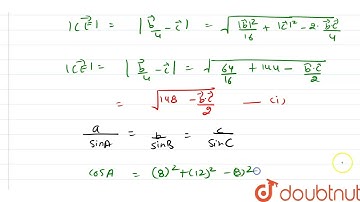 |CE⃗| = | b⃗/4 − c⃗ | = √( |b⃗|²/16 + |c⃗|² − 2· b⃗·c⃗/4 )
|CE⃗| = | b⃗/4 − c⃗ | = √( 64/16 + 144 − b⃗·c⃗/2 )
= √( 148 − b⃗·c⃗/2 ) — (i)
a/sinA = b/sinB = c/sinC
cosA = (8)² + (12)² − 8)²
doubtnut